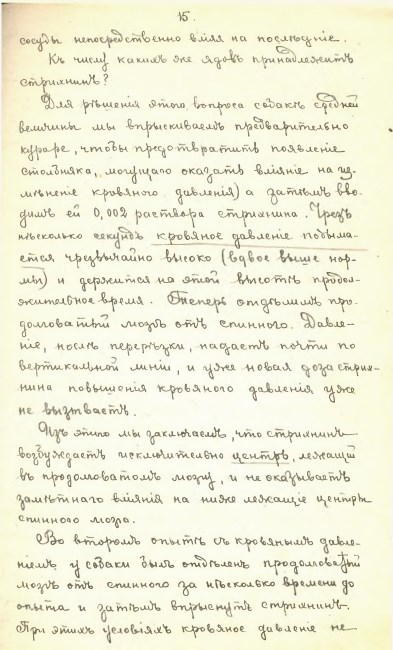 15.
сосуды непосредственно вліяя на послѣднiе.
Къ числу какихъ же ядовъ принадлежитъ
стрихнинъ?
Для рѣшенія этого вопроса собакѣ средней
величины мы впрыскиваемъ предварительно
кураре, чтобы предотвратить появленіе
столбняка, могущаго оказать вліяніе на из-
мѣненіе кровяного давленія) а затѣмъ вво-
димъ ей 0,002 раствора стрихнина. Чрезъ
нѣсколько секундъ кровяное давленіе подыма-
ется чрезвычайно высоко (вдвое выше нор-
мы) и держится на этой высотѣ продол-
жительное время. Теперь отдѣлимъ про-
долговатый мозгъ отъ спинного. Давле-
ніе, послѣ перерѣзки, падаетъ почти по
вертикальной линіи, и уже новая доза стрих-
нина повышенія кровяного давленія уже
не вызываетъ.
Изъ этого мы заключаемъ, что стрихнинъ
возбуждаетъ исключительно центръ, лежащій
въ продолговатомъ мозгу, и не оказываетъ
замѣтнаго вліянія на ниже лежащіе центры
спинного мозга.
Во второмъ опытѣ съ кровянымъ давле-
ніемъ у собаки былъ отдѣленъ продолговатый
мозгъ отъ спинного за нѣсколько времени до
опыта и затѣмъ впрыснутъ стрихнинъ.
При этихъ условіяхъ кровяное давленіе не